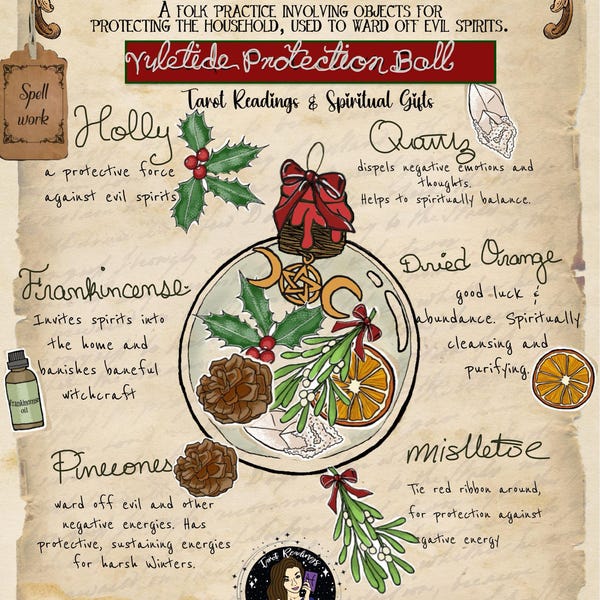 A FOLK PRACTICE INVOLVING OBJECTS FOR
PROTECTING THE HOUSEHOLD, USED TO WARD OFF EVIL SPIRITS.
Yuletide Protection Ball
Tarot Readings & Spiritual Gifts
Spell
work
Holly
a protective force
against evil spirits
Quartz
dispels negative emotions and
thoughts.
Helps to spiritually balance.
Frankincense
Invites spirits into
the home and
banishes baneful
witchcraft
Frankincense
oil
Dried Orange
good luck &
abundance. Spiritually
cleansing and
purifying.
Pinecones
ward off evil and other
negative energies. Has
protective, sustaining energies
for harsh Winters.
mistletoe
Tie red ribbon around,
for protection against
negative energy
Tarot Readings